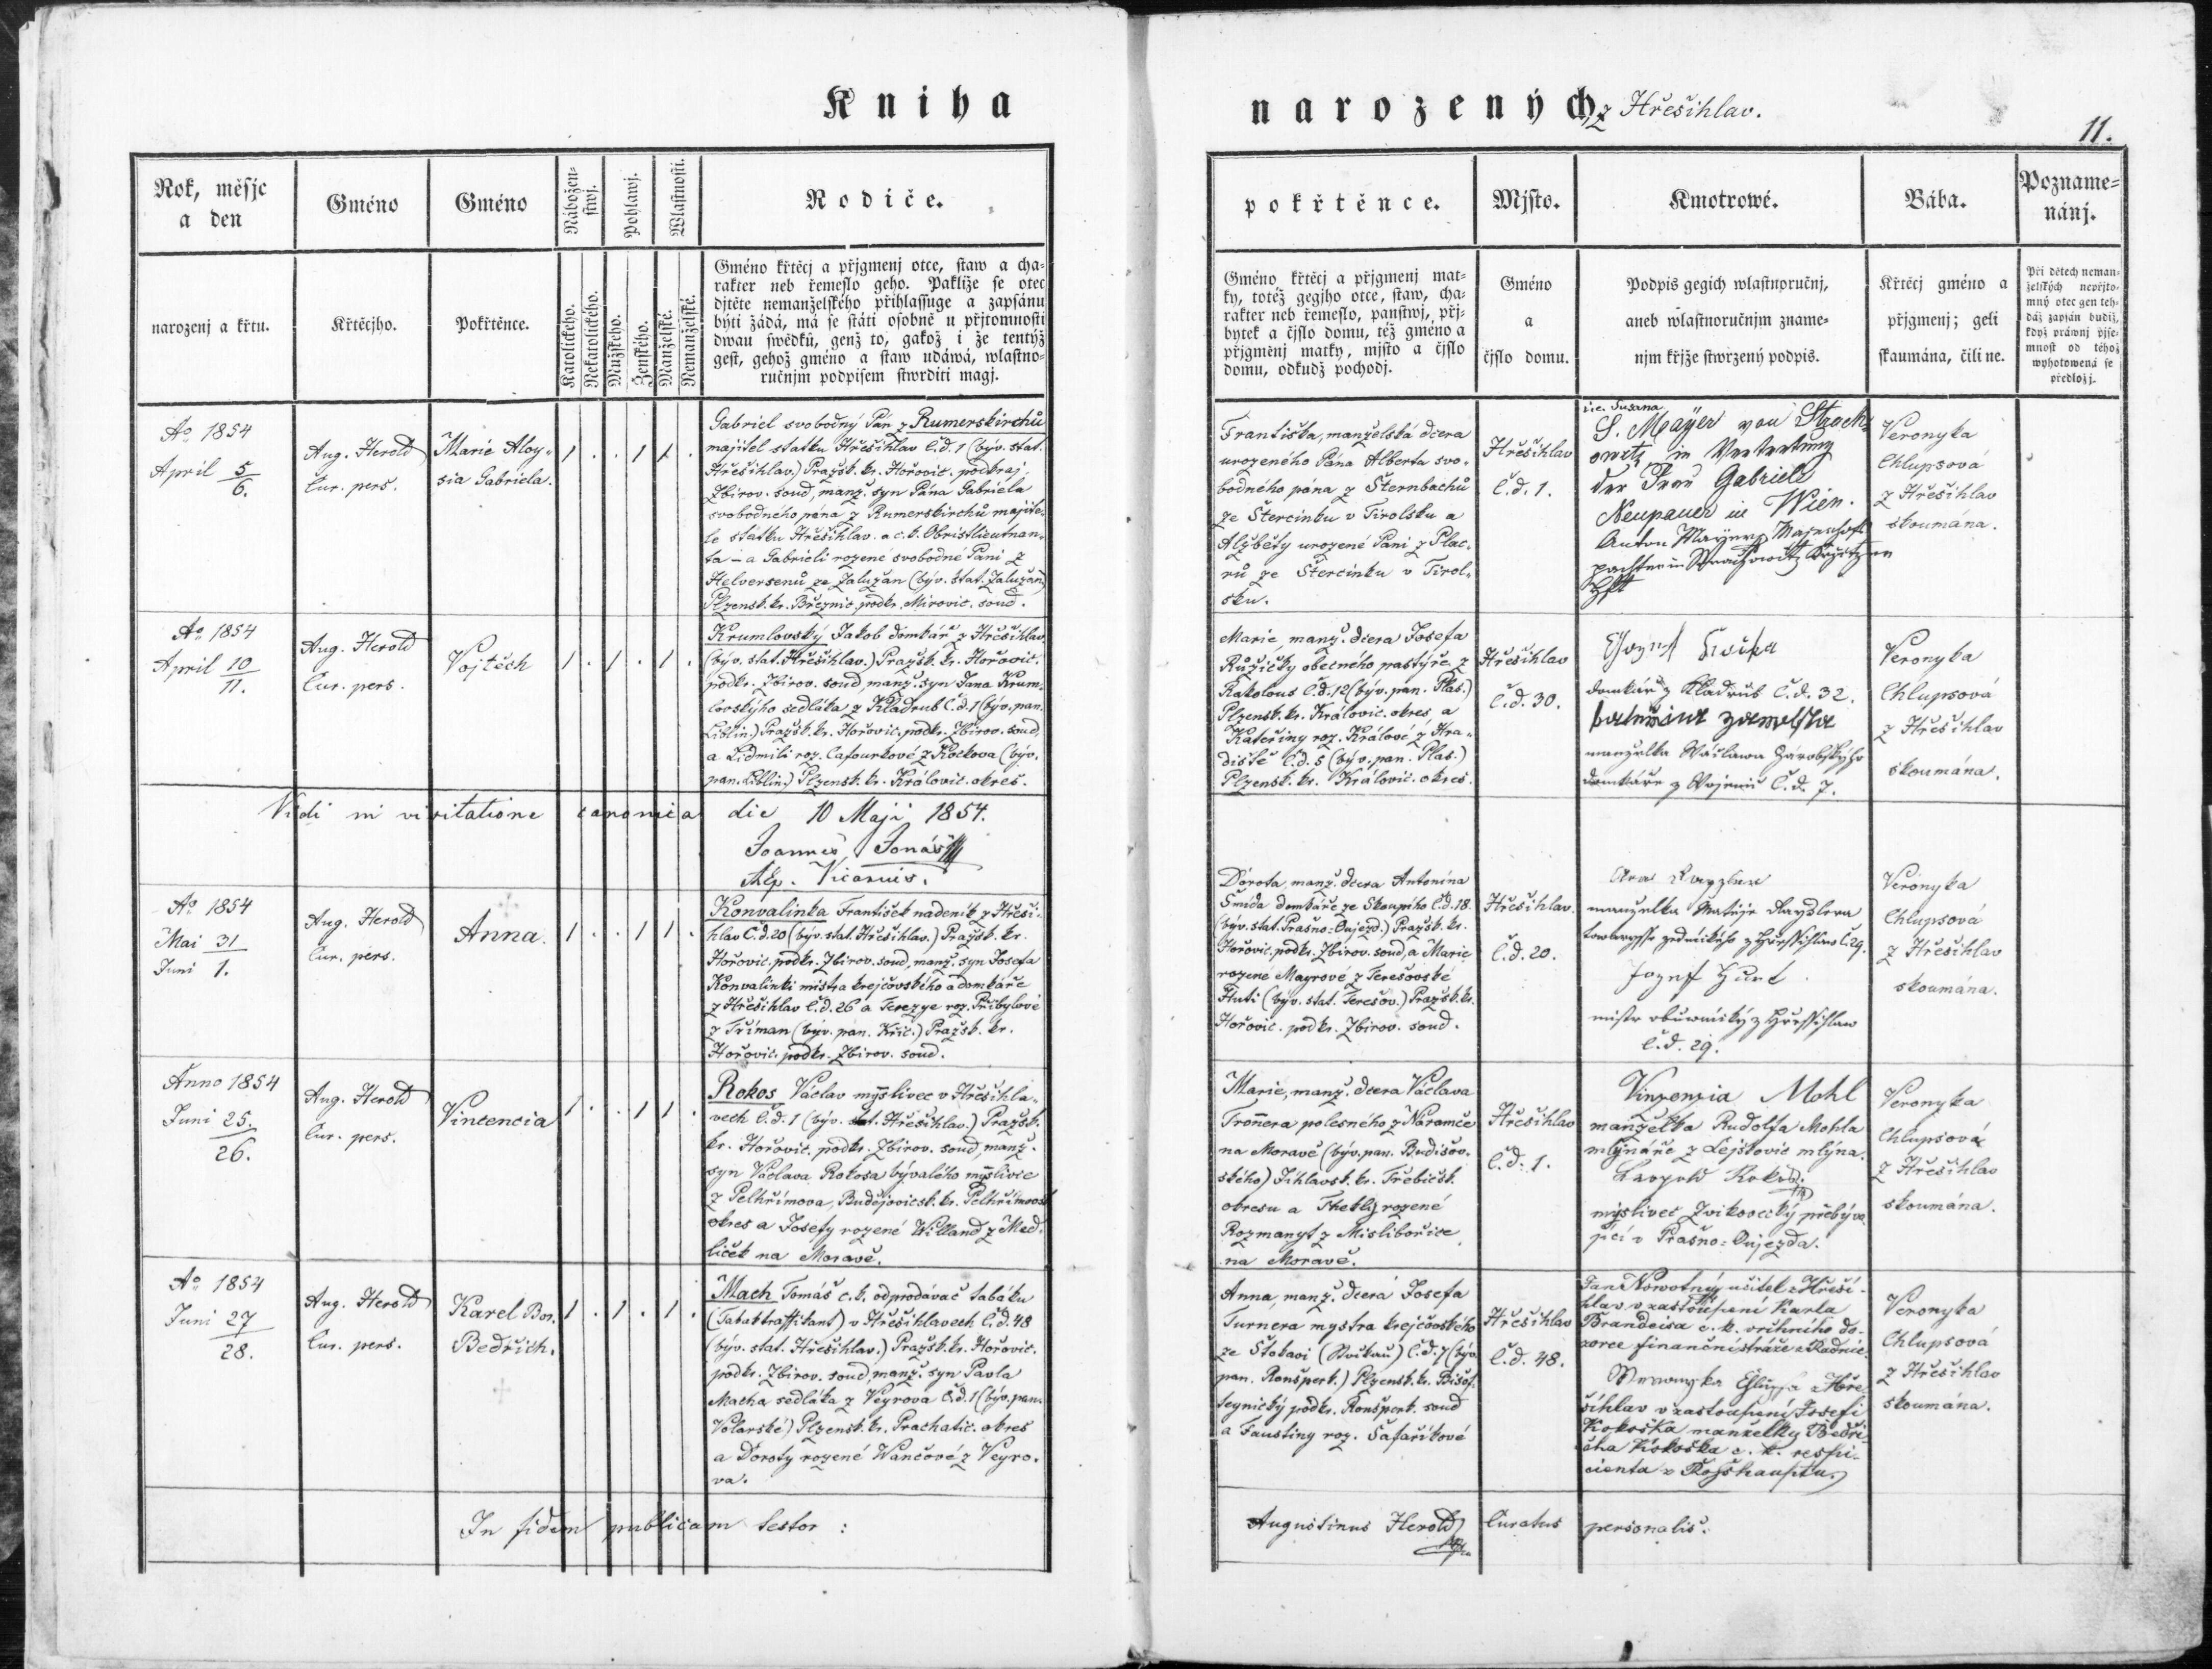 Kniha
narozených z Hřešihlav.
11.
Rok, měsjc
a den
Gméno
Gméno
Nábožen-
stwj.
Pohlawj.
Wlastnosti.
Rodiče.
narozenj a křtu.
Křtěcjho.
Pokřtěnce.
Katolického.
Nekatolického.
Mužského.
Ženského.
Manželské.
Nemanželské.
Gméno křtěcj a přjgmenj otce, staw a cha-
rakter neb řemeslo geho. Pakliže se otec
djtěte nemanželského přihlassuge a zapsánu
býti žádá, má se státi osobně u přjtomnosti
dwau swědků, genž to, gakož i že tentýž
gest, gehož gméno a staw udáwá, wlastno-
ručnjm podpisem stwrditi magj.
Aº 1854
April 5/6.
Aug. Herold
Cur. pers.
Marie Aloy-
sia Gabriela.
1 . . 1 1 .
Gabriel svobodný Pán z Rumerskirchů
majitel statku Hřešihlav č.d. 1 (býv. stat.
Hřešihlav.) Pražsk. kr. Hořovic. podkraj.
Zbirov. soud, manž. syn Pána Gabriela
svobodného pána z Rumerskirchů majite-
le statku Hřešihlav a c. k. Obristlieutnan-
ta – a Gabrieli rozené svobodné Paní z
Helversenů ze Zalužan (býv. stat. Zalužan)
Plzensk. kr. Březnic. podkr. Mirovic. soud.
Aº 1854
April 10/11.
Aug. Herold
Cur. pers.
Vojtěch
1 . 1 . 1 .
Krumlovský Jakob domkář z Hřešihlav
(býv. stat. Hřešihlav.) Pražsk. kr. Hořovic.
podkr. Zbirov. soud, manž. syn Jana Krum-
lovskýho sedláka z Kladrub č.d. 1 (býv. pan.
Liblin.) Pražsk. kr. Hořovic. podkr. Zbirov. soud,
a Lidmili roz. Cafourkové z Kočkova (býv.
pan. Liblin.) Plzensk. kr. Královic. okres.
Vidi in visitatione canonica die 10 Maji 1854.
Joannes Jonáš
Vicarius.
Aº 1854
Mai 31
Juni 1.
Aug. Herold
Cur. pers.
Anna.
1 . . 1 1 .
Konvalinka František nadeník z Hřeši-
hlav č.d. 20 (býv. stat. Hřešihlav.) Pražsk. kr.
Hořovic. podkr. Zbirov. soud, manž. syn Josefa
Konvalinki mistra krejčovského a domkáře
z Hřešihlav č.d. 26 a Terezye roz. Přibylové
z Tříman (býv. pan. Křic.) Pražsk. kr.
Hořovic. podkr. Zbirov. soud.
Anno 1854
Juni 25./26.
Aug. Herold
Cur. pers.
Vincencia
1 . . 1 1 .
Rokos Václav myslivec v Hřešihla-
vech č.d. 1 (býv. stat. Hřešihlav.) Pražsk.
kr. Hořovic. podkr. Zbirov. soud, manž.
syn Václava Rokosa bývalého myslivce
z Pelhřimova, Budějovicsk. kr. Pelhřimovsk.
okres a Josefy rozené Willand z Med-
liček na Moravě.
Aº 1854
Juni 27/28.
Aug. Herold
Cur. pers.
Karel Bor.
Bedřich.
1 . 1 . 1 .
Mach Tomáš c. k. odprodávač tabáku
(Tabaktraffikant) v Hřešihlavech č.d. 48
(býv. stat. Hřešihlav.) Pražsk. kr. Hořovic.
podkr. Zbirov. soud, manž. syn Pavla
Macha sedláka z Veyrova č.d. 1 (býv. pan.
Volarské) Plzensk. kr. Prachatic. okres
a Doroty rozené Wančové z Veyro-
va.
In fidem publicam testor :
pokřtěnce.
Mjsto.
Kmotrowé.
Bába.
Pozname-
nánj.
Gméno křtěcj a přjgmenj mat-
ky, totéž gegjho otce, staw, cha-
rakter neb řemeslo, panstwj, přj-
bytek a čjslo domu, též gméno a
přjgměnj matky, mjsto a čjslo
domu, odkudž pochodj.
Gméno
a
čjslo domu.
Podpis gegich wlastnoručnj,
aneb wlastnoručnjm zname-
njm křjže stwrzený podpis.
Křtěcj gméno a
přjgmenj; geli
skaumána, čili ne.
Při dětech neman-
želských nepřjto-
mný otec gen teh-
dáž zapsán budiž,
když práwnj vjse-
mnost od téhož
wyhotowená se
předložj.
Františka, manželská dcera
urozeného Pána Alberta svo-
bodného pána z Sternbachů
ze Stercinku v Tirolsku a
Alžběty urozené Paní z Plac-
rů ze Štercinku v Tirol-
sku.
Hřešihlav
č.d. 1.
S. Mayer von Strach-
owitz in Vertretung
der Frau Gabriele
Neupauer in Wien.
Anton Mayer
Veronyka
Chlupsová
z Hřešihlav
skoumána.
Marie, manž. dcera Josefa
Růžičky obecného pastýře z
Kakolous č.d. 12 (býv. pan. Plas.)
Plzensk. kr. Královic. okres a
Kateřiny roz. Králové z Hra-
diště č.d. 5 (býv. pan. Plas.)
Plzensk. kr. Královic. okres.
Hřešihlav
č.d. 30.
domkář z Kladrub č.d. 32.
manželka Václawa
domkáře z č.d. 7.
Veronyka
Chlupsová
z Hřešihlav
skoumána.
Dorota, manž. dcera Antonína
Šmída domkáře ze Skoupiho č.d. 18
(býv. stat. Prašno-Oujezd.) Pražsk. kr.
Hořovic. podkr. Zbirov. soud, a Marie
rozené Mayrové z Terešovské
Huti (býv. stat. Terešov.) Pražsk. kr.
Hořovic. podkr. Zbirov. soud.
Hřešihlav.
č.d. 20.
manželka Matěje
z Hřessihlaw č. 29.
Jozeff
mistr obuwnický z Hřessihlaw
č.d. 29.
Veronyka
Chlupsová
z Hřešihlav
skoumána.
Marie, manž. dcera Václava
Tronnera polesného z Náramče
na Moravě (býv. pan. Budišov-
ského) Jihlavsk. kr. Třebičsk.
okresu a Thekly rozené
Rozmanyt z Mislibořice
na Moravě.
Hřešihlav
č.d. 1.
Vinzenzia Mohl
manželka Rudolfa Mohla
mlynáře z Lejstovic mlýna.
Leopold Rokos
myslivec Zvikovecký přebýva-
jící v Prašno-Oujezda.
Veronyka
Chlupsová
z Hřešihlav
skoumána.
Anna, manž. dcera Josefa
Turnera mystra krejčovského
ze Štokavi (Stvikau) č.d. 7 (býv.
pan. Ronšperk.) Plzensk. kr. Bišof-
teynický podkr. Ronšperk. soud
a Faustiny roz. Šafaříkové
Hřešihlav
č.d. 48.
Jan Nowotný učitel z Hřeši-
hlav v zastoupení Karla
Brandeisa c. k. vrchního do-
zorce finanční stráže z Radnic.
Veronyka z Hře-
šihlav v zastoupení Josefi
Kokoška manželky Bedři-
cha Kokoška c. k. respi-
cienta v Rosshauptu.
Veronyka
Chlupsová
z Hřešihlav
skoumána.
Augustinus Herold Curatus personalis.